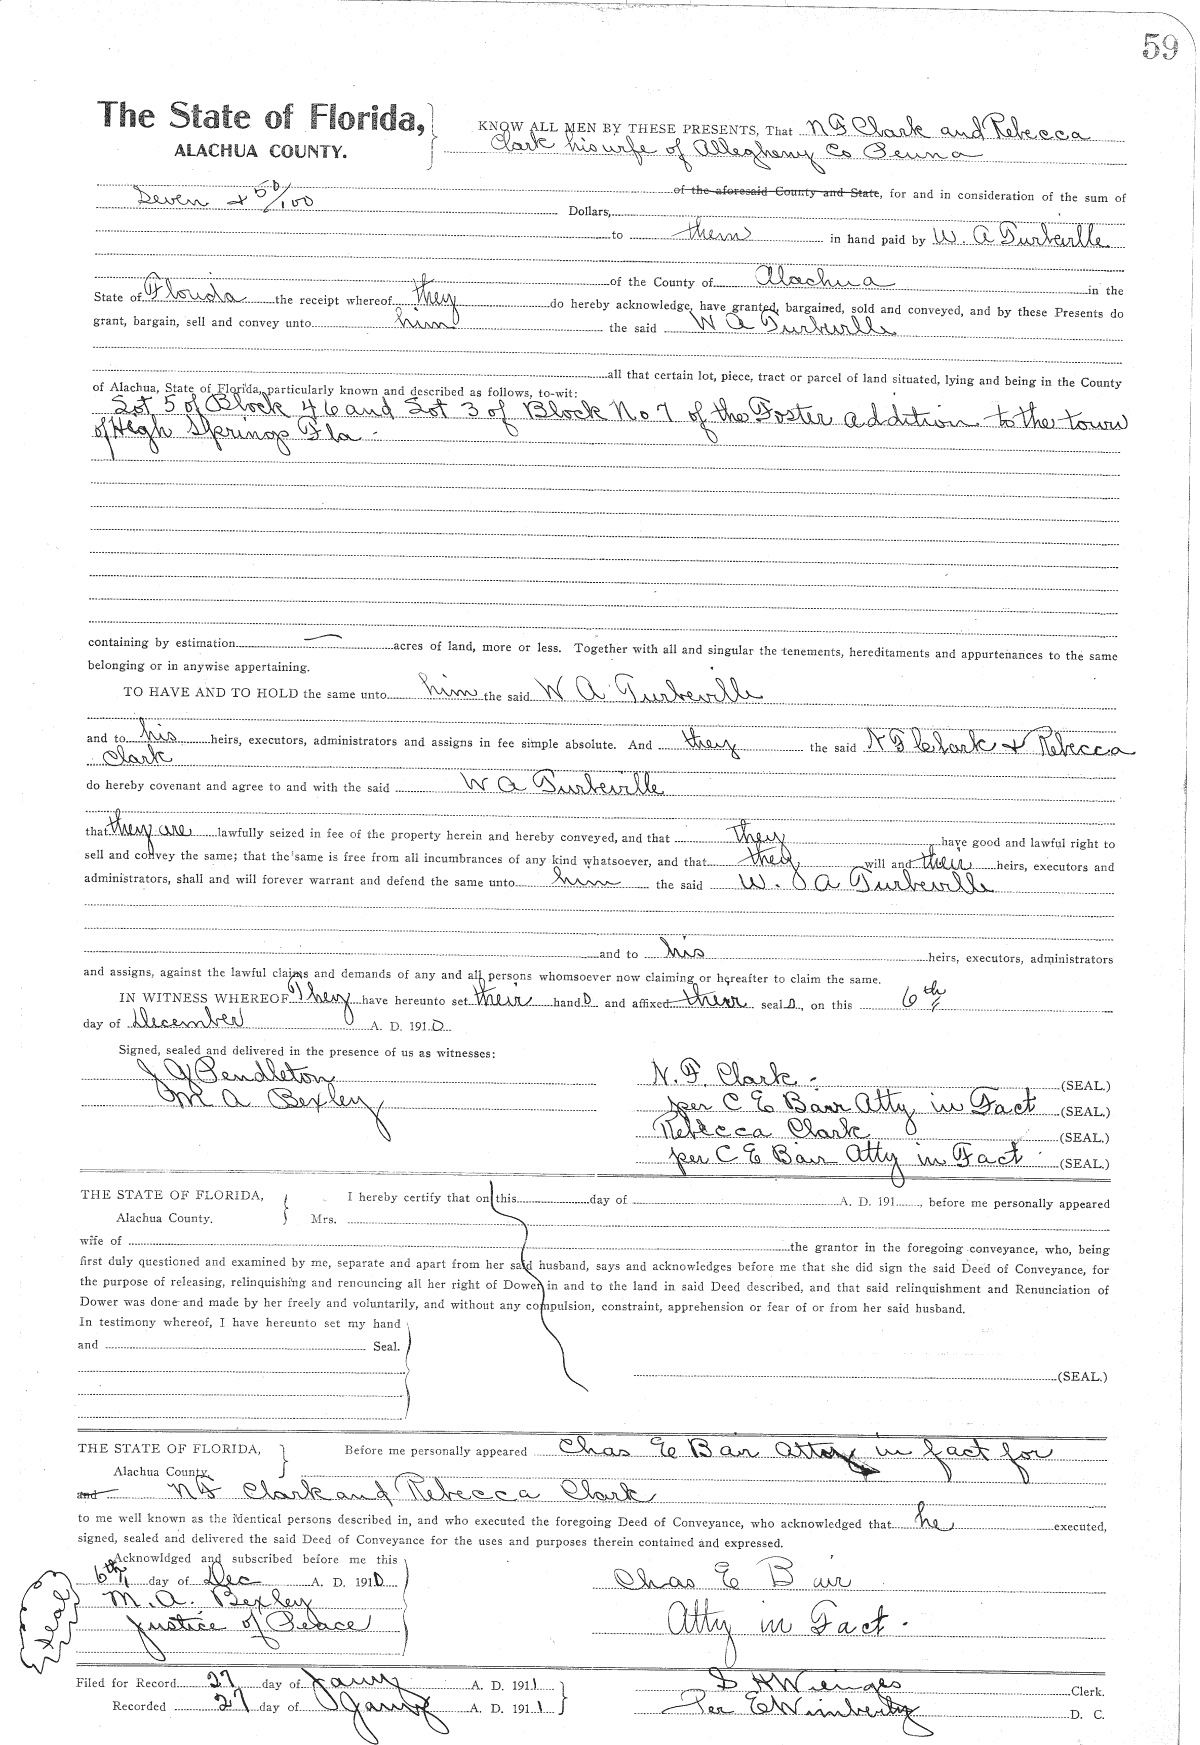 59
The State of Florida,
ALACHUA COUNTY.
KNOW ALL MEN BY THESE PRESENTS, That N F Clark and Rebecca
Clark his wife of Allegheny Co Penna
of the aforesaid County and State, for and in consideration of the sum of
Seven + 50/100 Dollars,
to them in hand paid by W. A Turbeville
of the County of Alachua in the
State of Florida the receipt whereof they do hereby acknowledge, have granted, bargained, sold and conveyed, and by these Presents do
grant, bargain, sell and convey unto him the said W A Turbeville
all that certain lot, piece, tract or parcel of land situated, lying and being in the County
of Alachua, State of Florida, particularly known and described as follows, to-wit:
Lot 5 of Block 46 and Lot 3 of Block No 7 of the Foster addition to the town
of High Springs Fla -
containing by estimation — acres of land, more or less. Together with all and singular the tenements, hereditaments and appurtenances to the same
belonging or in anywise appertaining.
TO HAVE AND TO HOLD the same unto him the said W A Turbeville
and to his heirs, executors, administrators and assigns in fee simple absolute. And they the said N F Clark + Rebecca
Clark
do hereby covenant and agree to and with the said W A Turbeville
that they are lawfully seized in fee of the property herein and hereby conveyed, and that they have good and lawful right to
sell and convey the same; that the same is free from all incumbrances of any kind whatsoever, and that they will and their heirs, executors and
administrators, shall and will forever warrant and defend the same unto him the said W. A Turbeville
and to his heirs, executors, administrators
and assigns, against the lawful claims and demands of any and all persons whomsoever now claiming or hereafter to claim the same.
IN WITNESS WHEREOF They have hereunto set their hand s and affixed their seal s, on this 6th
day of December A. D. 1910
Signed, sealed and delivered in the presence of us as witnesses:
J G Pendleton N. F. Clark - (SEAL.)
M A Bexley per C E Bair Atty in Fact (SEAL.)
Rebecca Clark (SEAL.)
per C E Bair Atty in Fact (SEAL.)
THE STATE OF FLORIDA, I hereby certify that on this day of A. D. 191 , before me personally appeared
Alachua County. Mrs.
wife of the grantor in the foregoing conveyance, who, being
first duly questioned and examined by me, separate and apart from her said husband, says and acknowledges before me that she did sign the said Deed of Conveyance, for
the purpose of releasing, relinquishing and renouncing all her right of Dower in and to the land in said Deed described, and that said relinquishment and Renunciation of
Dower was done and made by her freely and voluntarily, and without any compulsion, constraint, apprehension or fear of or from her said husband.
In testimony whereof, I have hereunto set my hand
and Seal.
(SEAL.)
THE STATE OF FLORIDA, Before me personally appeared Chas E Bair Attory in fact for
Alachua County.
and N F Clark and Rebecca Clark
to me well known as the identical persons described in, and who executed the foregoing Deed of Conveyance, who acknowledged that he executed,
signed, sealed and delivered the said Deed of Conveyance for the uses and purposes therein contained and expressed.
Acknowldged and subscribed before me this
6th day of Dec A. D. 1910 Chas E Bair
M. A. Bexley
Justice of Peace Atty in Fact -
Seal
Filed for Record 27 day of Jany A. D. 1911 S H Wienges Clerk.
Recorded 27 day of Jany A. D. 1911 Per E Wimberly D. C.